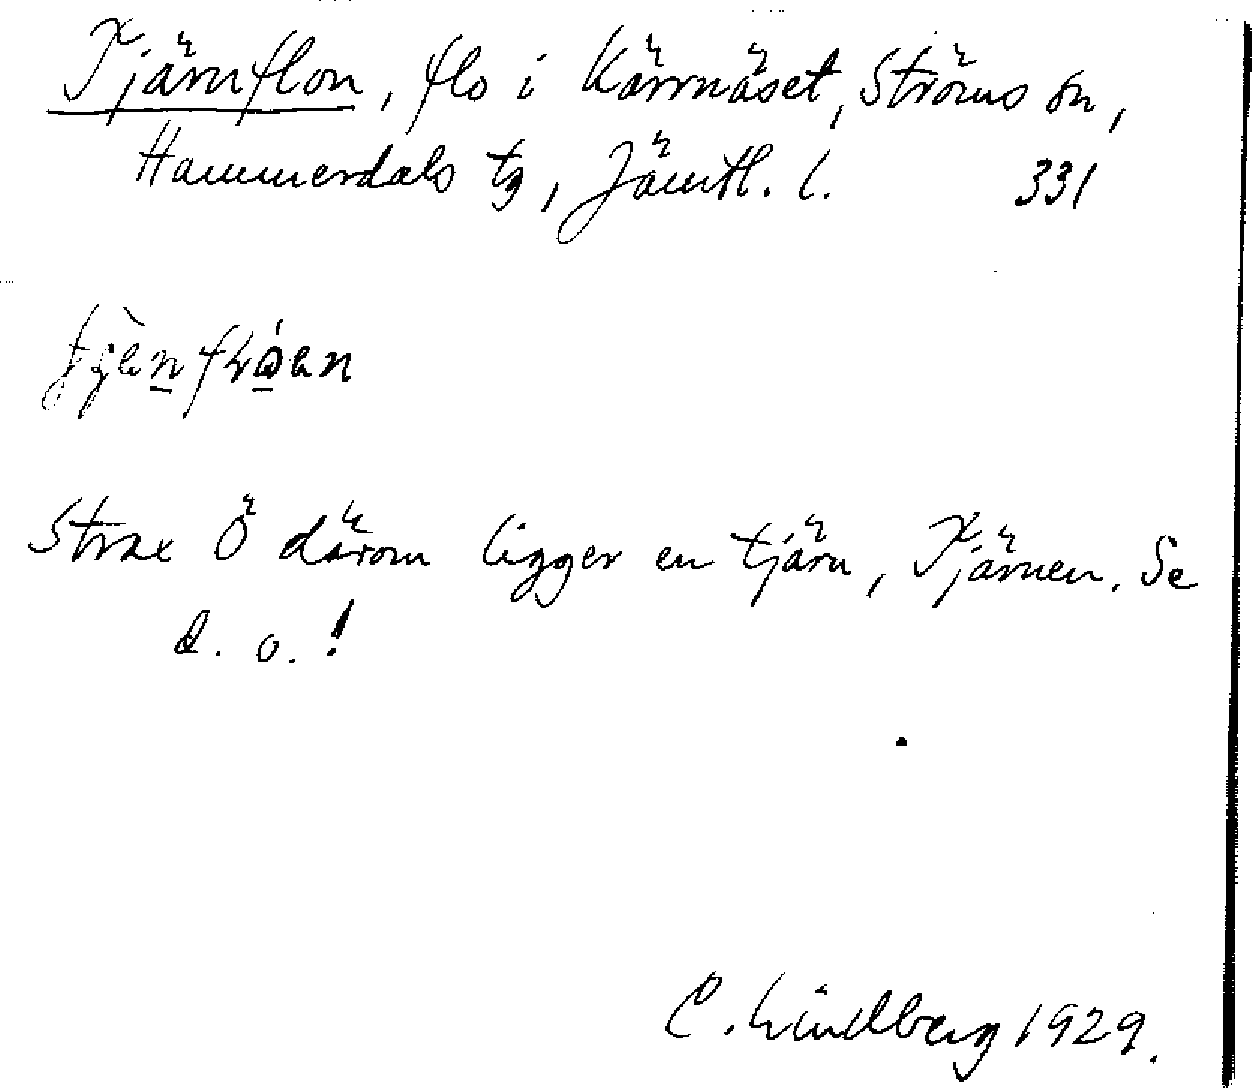 Tjärnflon, flo i Kärrnäset, Ströms sn,
Hammerdals tg, Jämtl. l. 331
Strax Ö därom ligger en tjärn, Tjärnen. Se
d. o.!
C. Lindberg 1929.